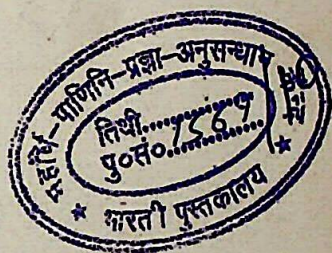 महर्षि-पाणिनि-प्रज्ञा-अनुसन्धान
तिथी..................
पु०सं०.1567.........
भारती पुस्तकालय